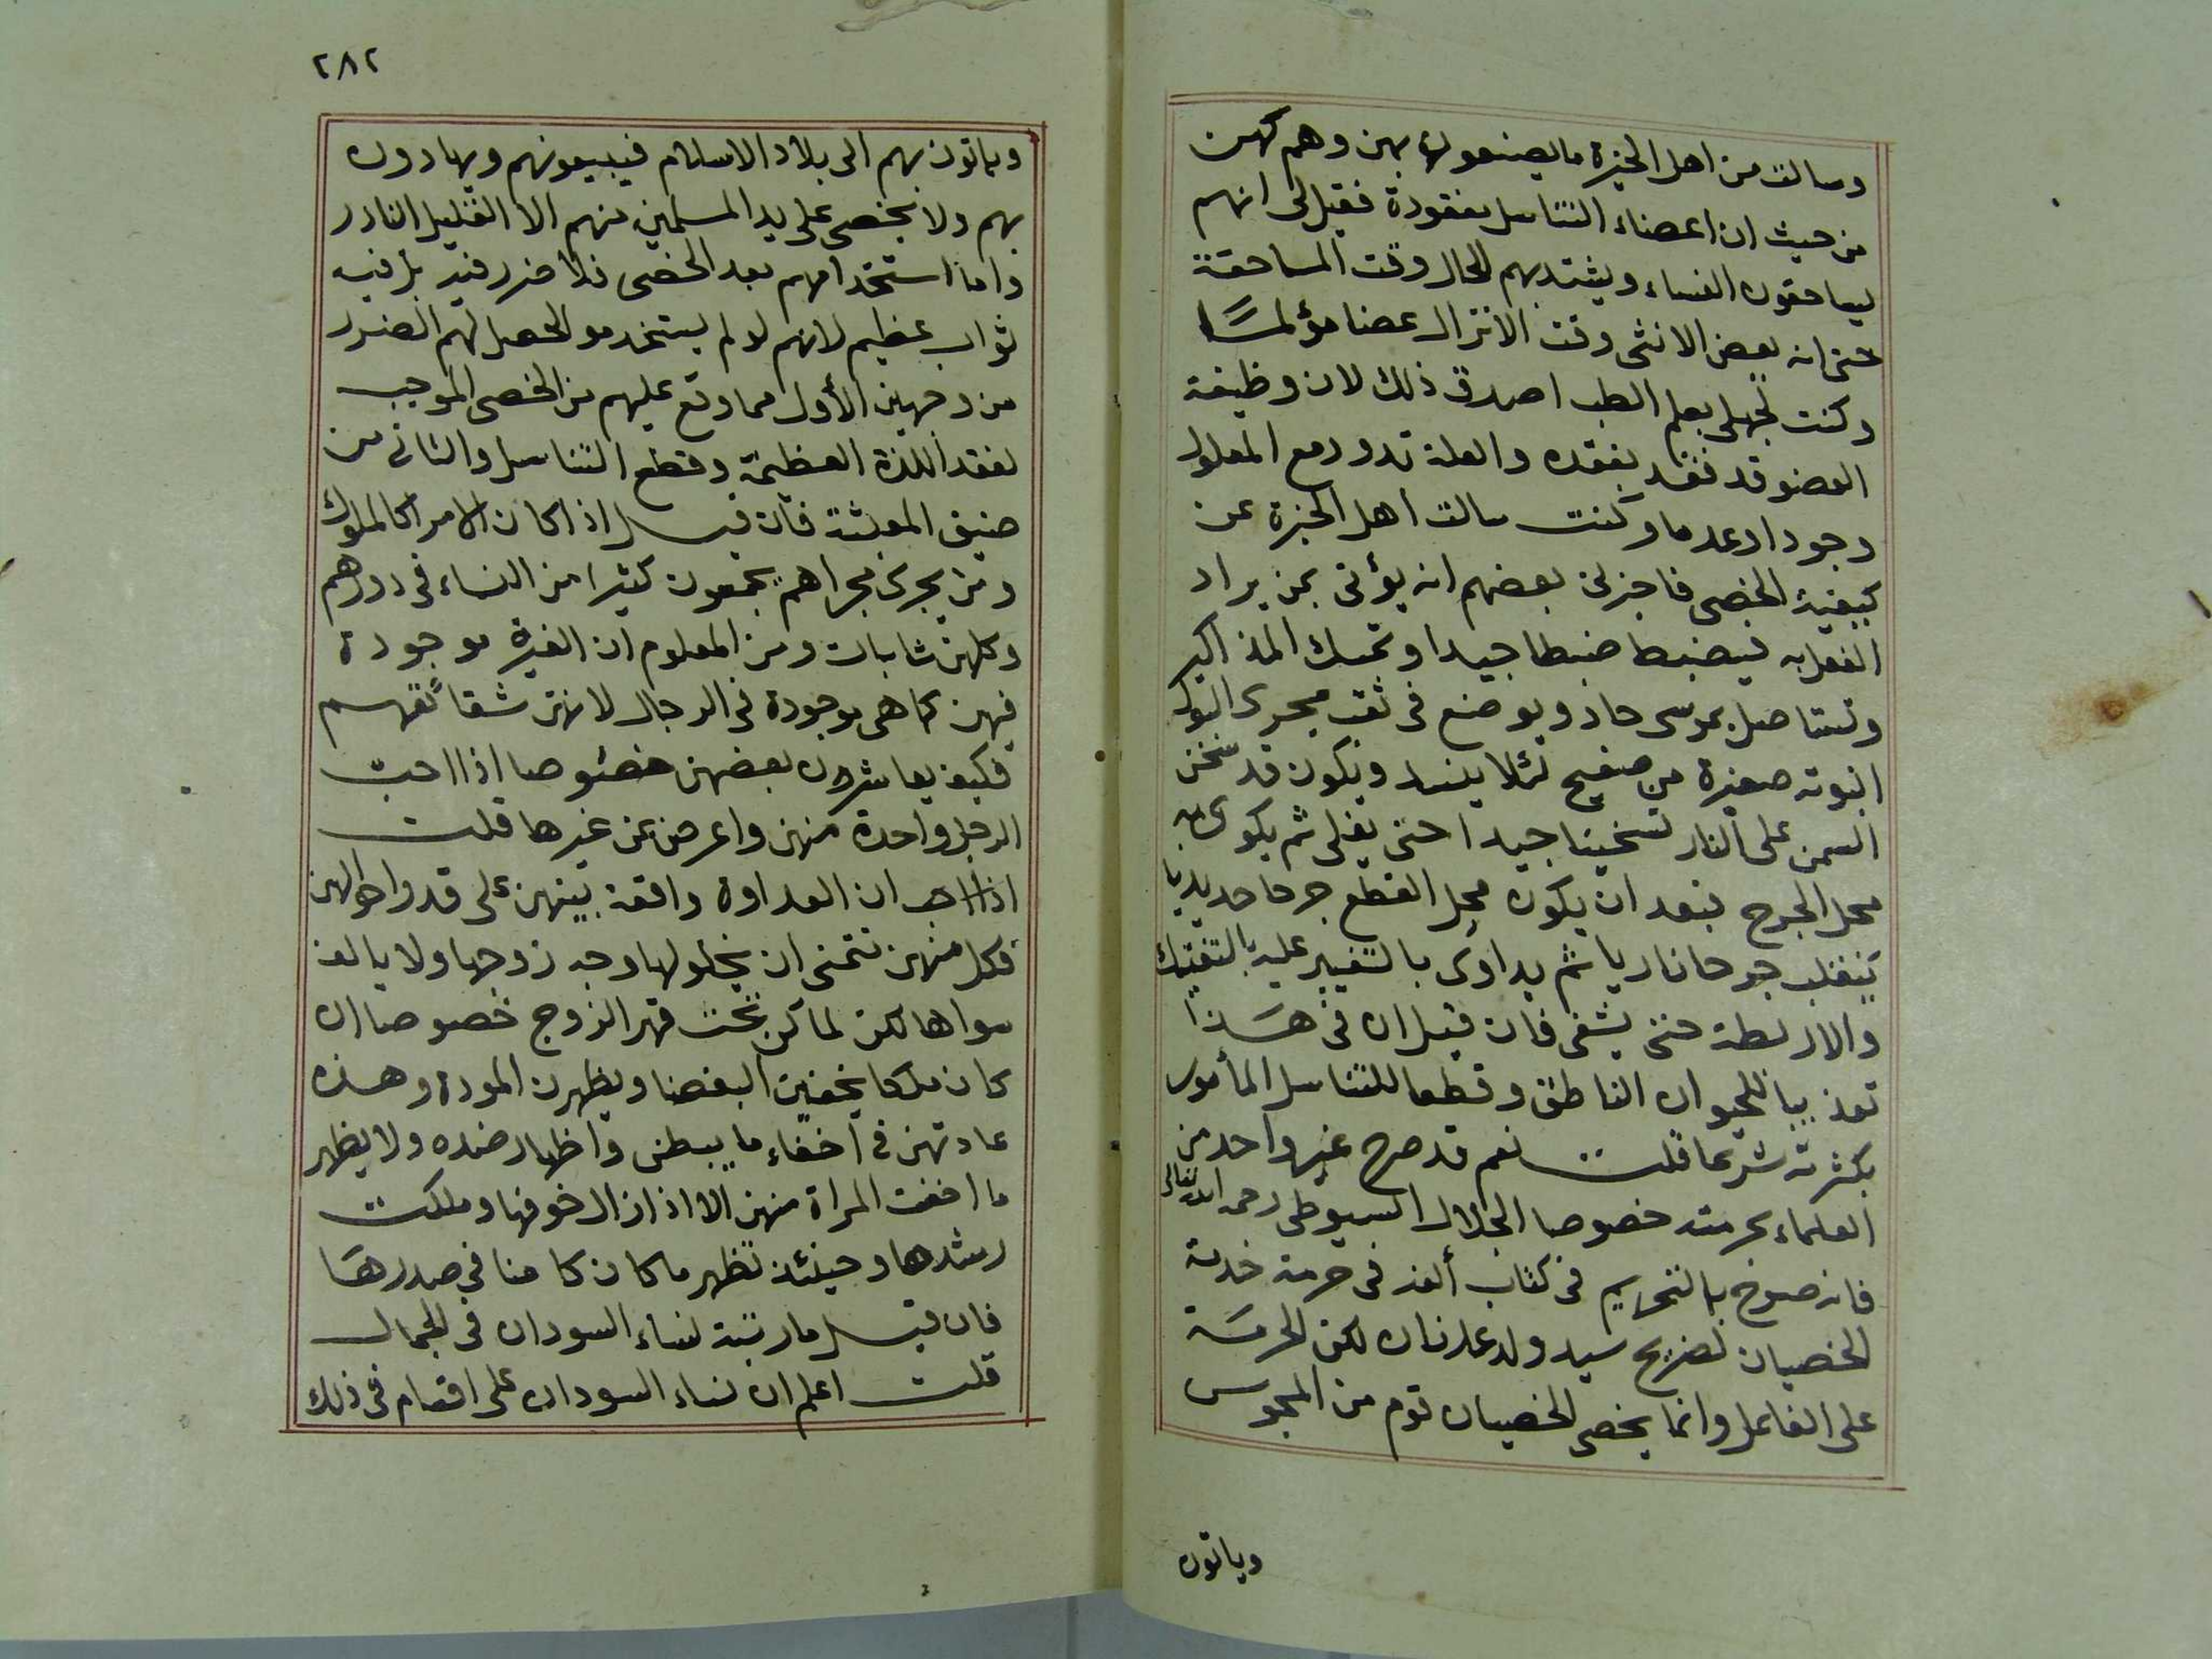 وسالت من اهل الخبرة ما يصنعون بهن وهم كهن
من حيث ان اعضاء التناسل مفقودة فقيل لى انهم
يساحقون النساء ويشتد بهم الحال وقت المساحقة
حتى انه يعض الانثى وقت الانزال عضا مؤلمًا
وكنت لجهلى بعلم الطب اصدق ذلك لان وظيفة
العضو قد فقد بفقده والعلة تدور مع المعلول
وجودا وعدما وكنت سالت اهل الخبرة عن
كيفية الخصى فاخبرنى بعضهم انه يؤتى بمن يراد
الفعل به فيضبط ضبطا جيدا وتمسك المذاكير
وتستاصل بموسى حاد ويوضع فى ثقب مجرى البول
انبوبة صغيرة من صفيح لئلا ينسد ويكون قد سخن
السمن على النار تسخينا جيدا حتى يغلى ثم يكوى به
محل الجرح فبعد ان يكون محل القطع جرحا حديديا
ينقلب جرحا ناريا ثم يداوى بالتغيير عليه بالتفتيك
والاربطة حتى يشفى فان قيل ان فى هذا
تعذيبا للحيوان الناطق وقطعا للتناسل المأمور
بكثرته شرعا قلت نعم قد صرح غير واحد من
العلماء بحرمته خصوصا الجلال السيوطى رحمه الله تعالى
فانه صرح بالتحريم فى كتاب ألفه فى حرمة خدمة
الخصيان لضريح سيد ولد عدنان لكن الحرمة
على الفاعل وانما يخصى الخصيان قوم من المجوس
وياتون
٢٨٢
وياتون بهم الى بلاد الاسلام فيبيعونهم ويهادون
بهم ولا يخصى على يد المسلمين منهم الا القليل النادر
واما استخدامهم بعد الخصى فلا ضرر فيه بل فيه
ثواب عظيم لانهم لو لم يستخدموا لحصل لهم الضرر
من وجهين الأول مما وقع عليهم من الخصى الموجب
لفقد اللذة العظيمة وقطع التناسل والثانى من
ضيق المعيشة فان قيل اذا كان الامرا كالملوك
ومن يجرى مجراهم يجمعون كثيرا من النساء فى دورهم
وكلهن شابات ومن المعلوم ان الغيرة موجودة
فيهن كما هى موجودة فى الرجال لانهن شقائقهم
فكيف يعاشرون بعضهن خصوصا اذا احب
الرجل واحدة منهن واعرض عن غيرها قلت
ان العداوة واقعة بينهن على قدر احوالهن
فكل منهن تتمنى ان يخلو لها وجه زوجها ولا يالف
سواها لكن لما كن تحت قهر الزوج خصوصا ان
كان ملكا يخفين البغضا ويظهرن المودة وهذه
عادتهن فى اخفاء ما يبطن واظهار ضده ولا يظهر
ما اخفت المراة منهن الا اذا زال خوفها وملكت
رشدها وحينئذ تظهر ما كان كامنا فى صدرها
فان قيل ما رتبة نساء السودان فى الجمال
قلت اعلم ان نساء السودان على اقسام فى ذلك